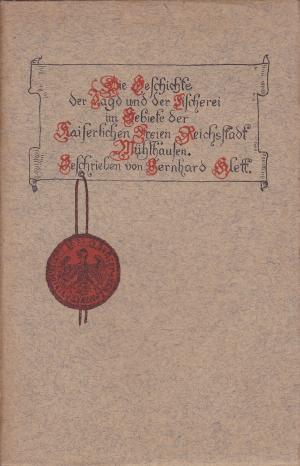 Die Geschichte
der Jagd und der Fischerei
im Gebiete der
Kaiserlichen Freien Reichsstadt
Mühlhausen.
Geschrieben von Bernhard Klett.